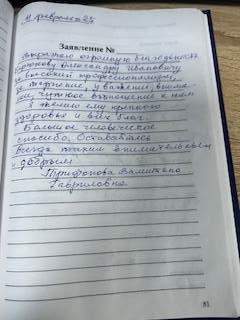 февраля 25
Заявление №
Выражаю огромную благодарность
Александру Ивановичу
за высокий профессионализм,
за терпение, уважение, внима
ние, чуткое отношение к нам
Я желаю ему крепкого
здоровья и всех благ.
Большое человеческое
спасибо. Оставайтесь
всегда таким внимательным
и добрым.
Гавриловна
81